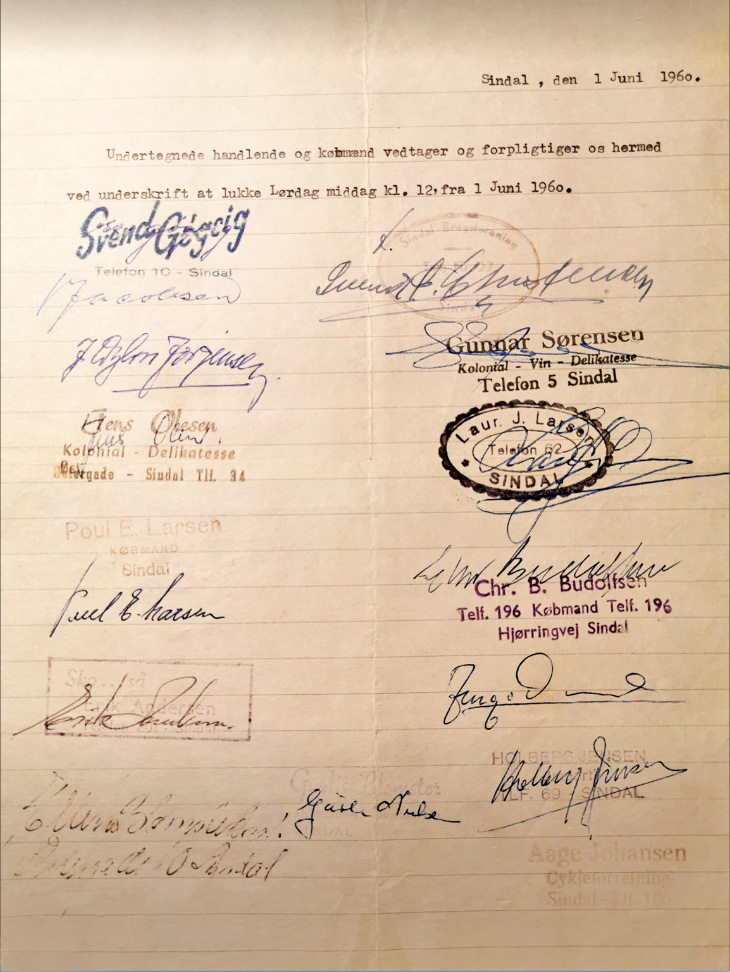 Sindal , den 1 Juni 1960.
Undertegnede handlende og købmænd vedtager og forpligtiger os hermed
ved underskrift at lukke Lørdag middag kl. 12, fra 1 Juni 1960.
Svend Gøgsig
Telefon 10 - Sindal
Jacobsen
Jørgensen
Jens Olesen
Jens Olesen
Kolonial - Delikatesse
Østergade - Sindal Tlf. 34
Poul E. Larsen
KØBMAND
Sindal
Poul E. Larsen
Sko.. så
Erik Andersen
Sindal
Erik Andersen
Sindal
Sindal Brugsforening
Sindal
Svend Christensen
Gunnar Sørensen
Kolonial - Vin - Delikatesse
Telefon 5 Sindal
Laur. J. Larsen
Telefon 62
SINDAL
Budolfsen
Chr. B. Budolfsen
Telf. 196 Købmand Telf. 196
Hjørringvej Sindal
HOLBERG JENSEN
TLF. 69 - SINDAL
Holberg Jensen
Aage Johansen
Cykleforretning
Sindal - Tlf. 106